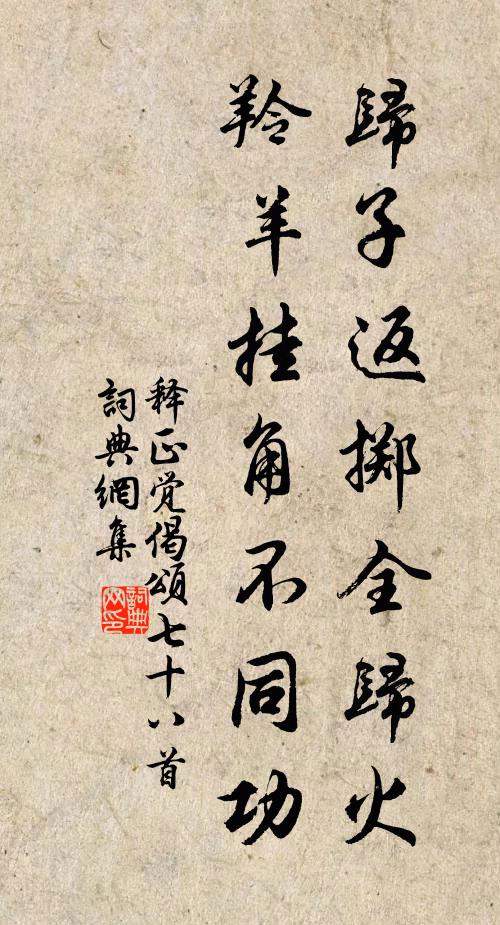 歸子返擲全歸火
羚羊挂角不同功
释正觉偈頌七十八首
詞典網集
詞典网印